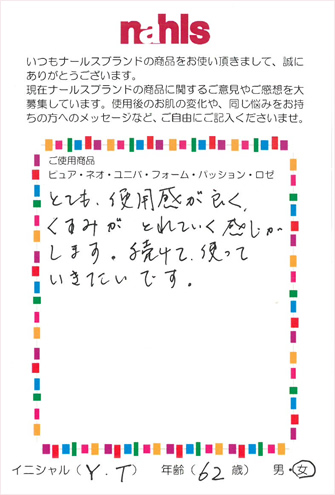 nahls
いつもナールスブランドの商品をお使い頂きまして、誠に
ありがとうございます。
現在ナールスブランドの商品に関するご意見やご感想を大
募集しています。使用後のお肌の変化や、同じ悩みをお持
ちの方へのメッセージなど、ご自由にご記入くださいませ。
ご使用商品
ピュア・ネオ・ユニバ・フォーム・パッション・ロゼ
とても、使用感が良く、
くすみが とれていく感じが
します。続けて、使って
いきたいです。
イニシャル（Y.T） 年齢（62歳） 男・女